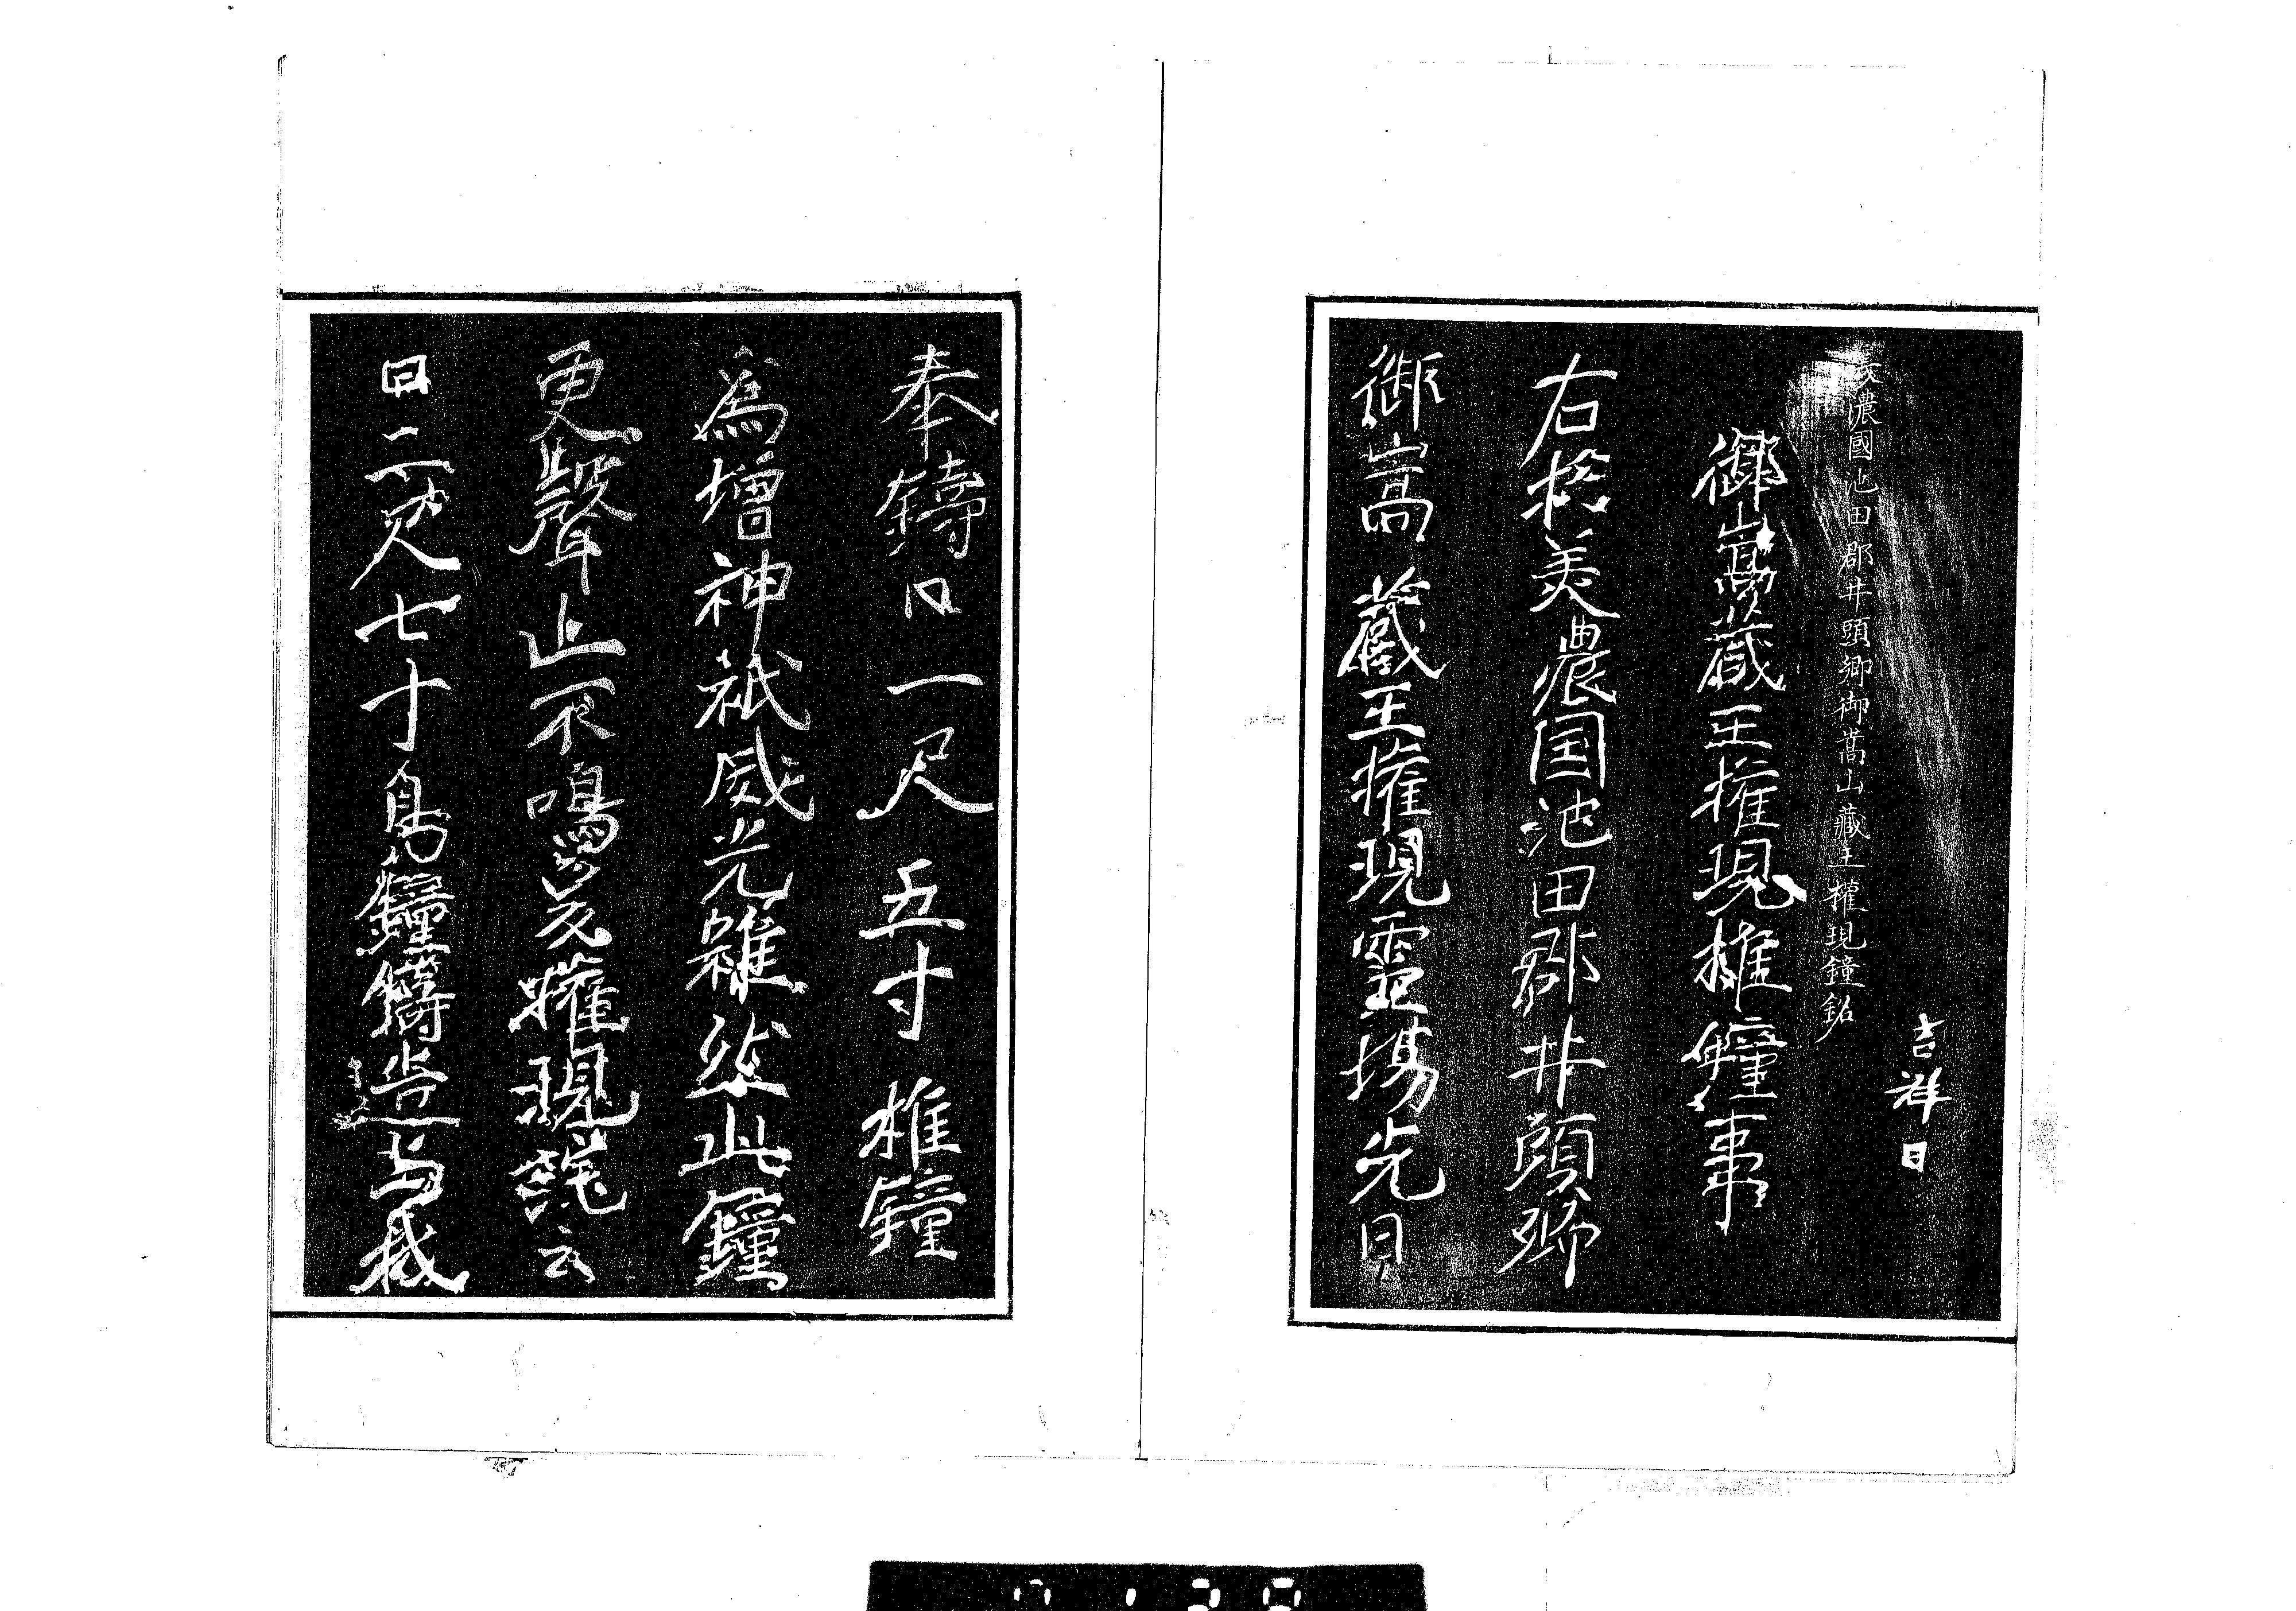 吉祥日
美濃國池田郡井頭郷御嵩山藏王權現鐘銘
御嵩藏王権現推鐘事
右於美農国池田郡井頭郷
御嵩藏王権現靈場先日
奉鑄口一尺五寸推鐘
為増神祇威光雖然此鐘
更聲止不鳴爰権現託云
口二尺七寸鳥鐘鑄造